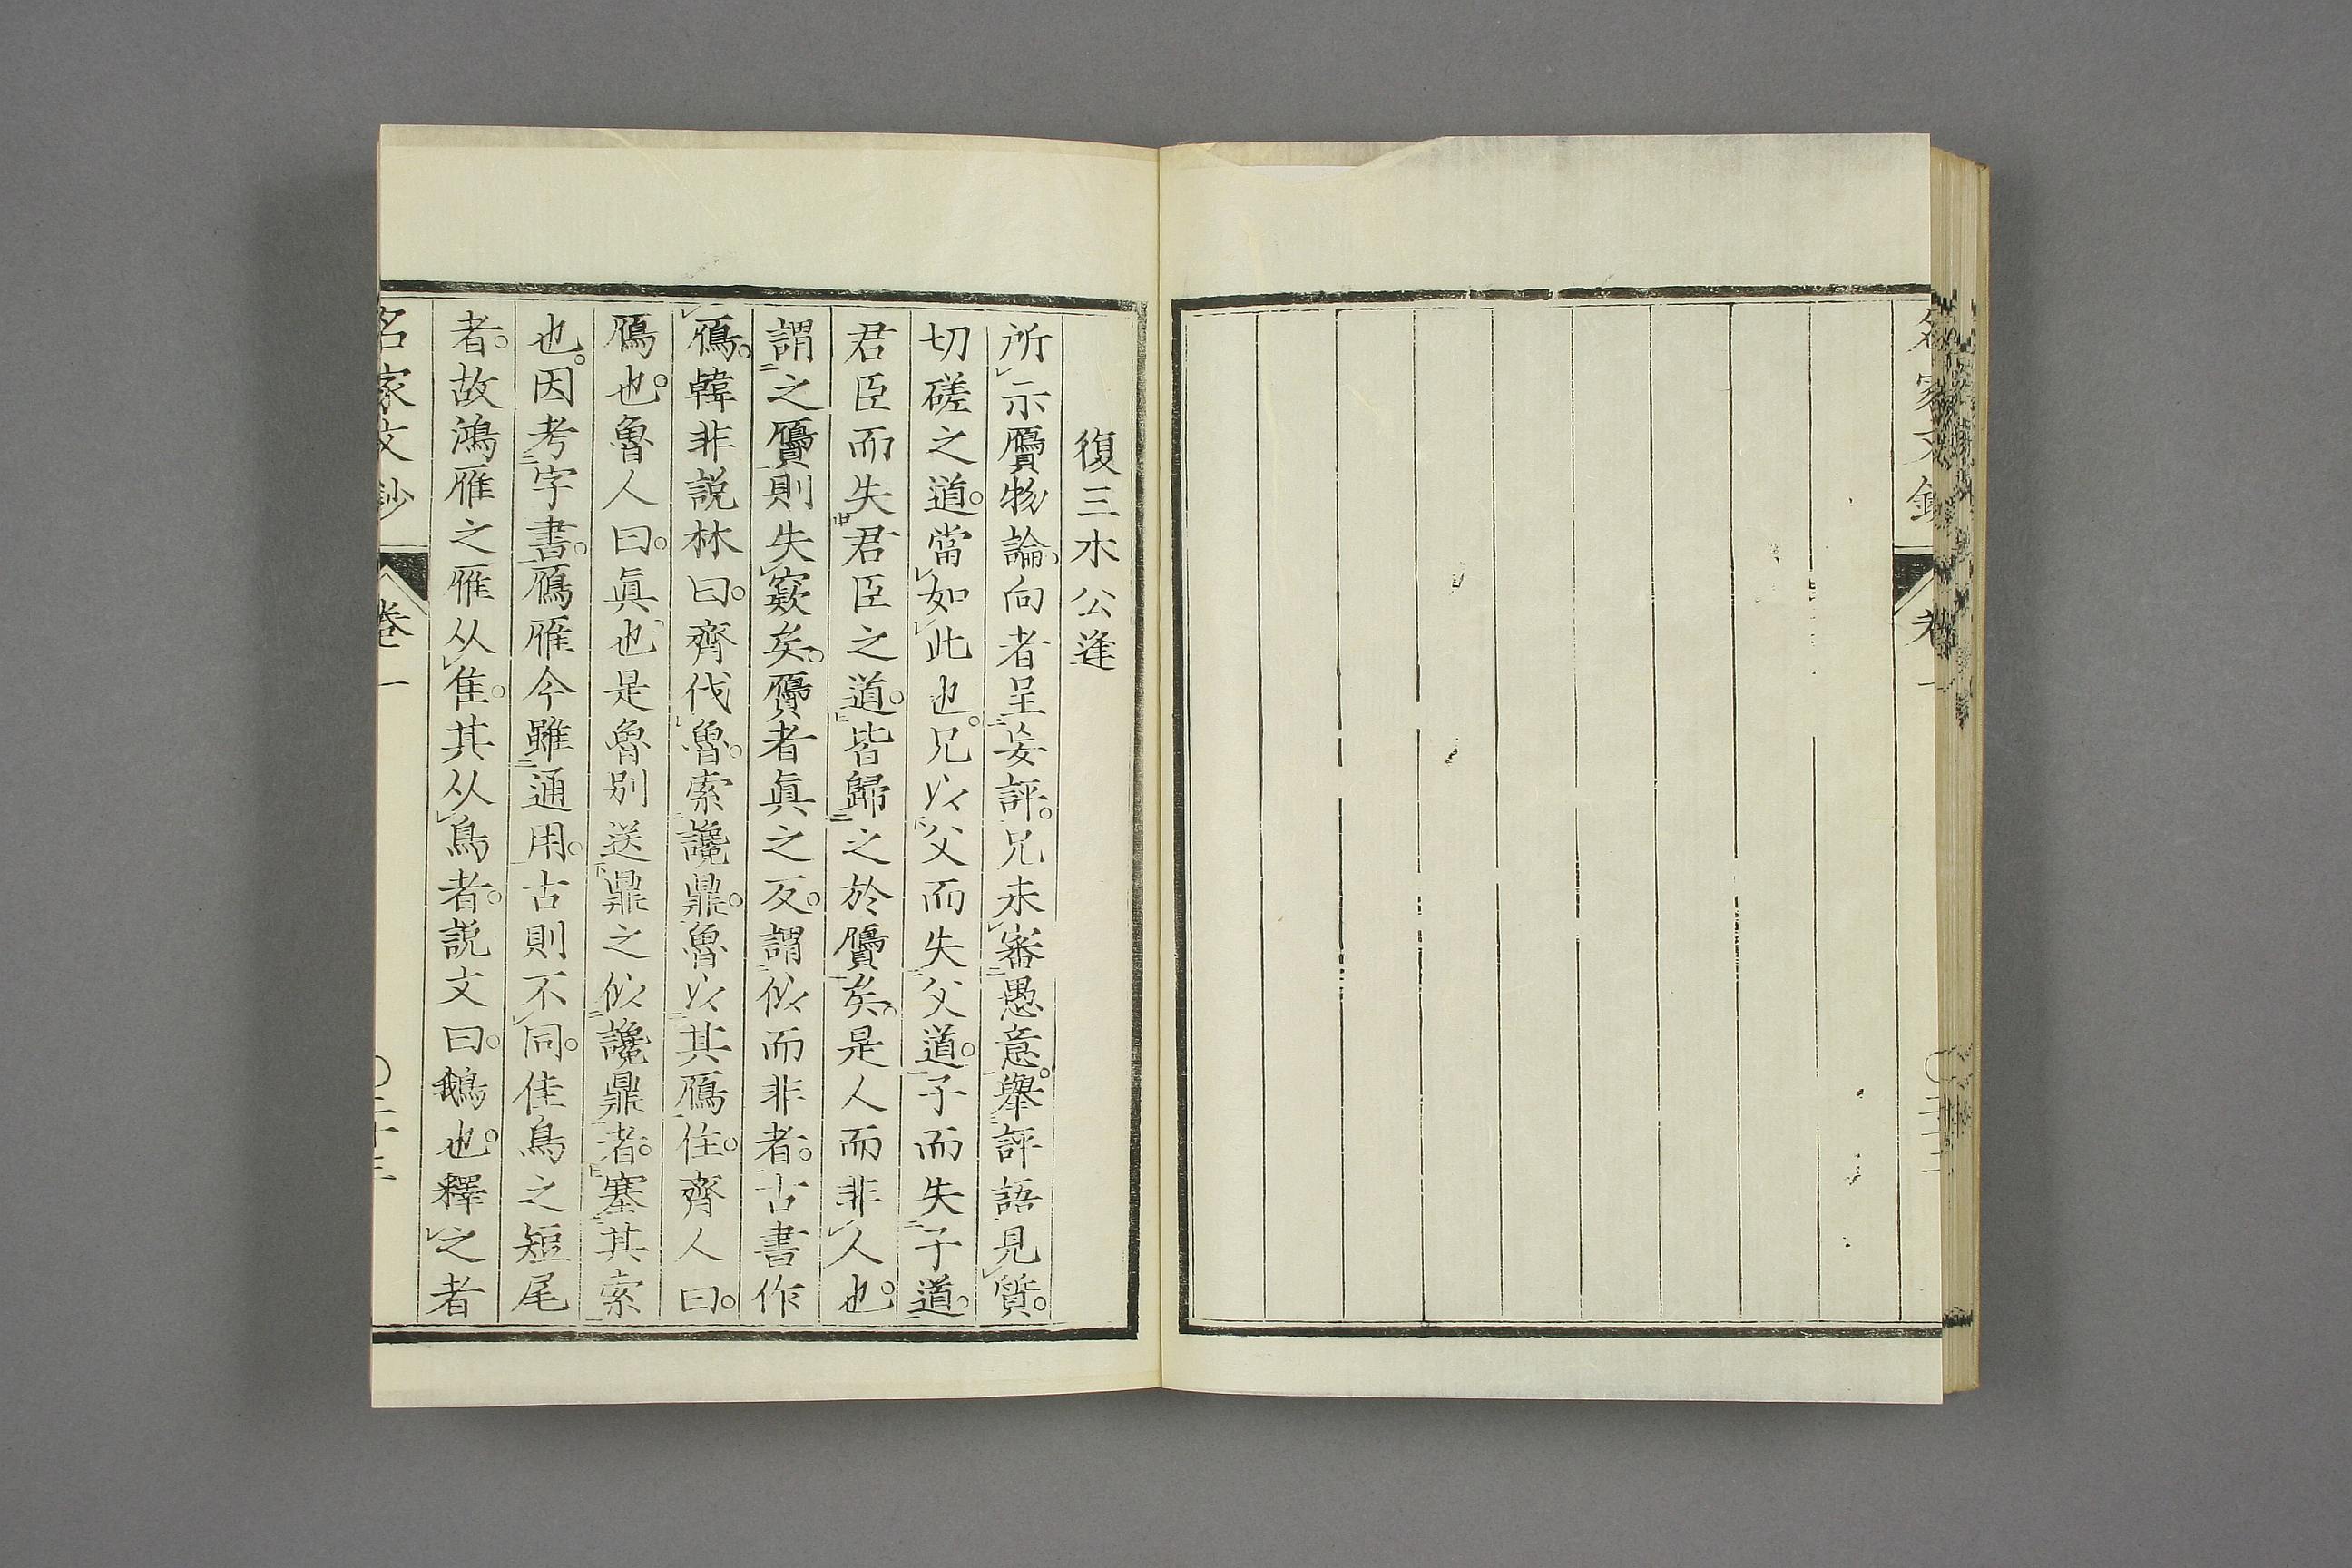 名家文鈔 卷一
復三木公逢
所示贗物論向者呈妄評。兄未審愚意。舉評語見質。
切磋之道。當如此也。兄以父而失父道。子而失子道。
君臣而失君臣之道。皆歸之於贗矣。是人而非人也。
謂之贗則失窾矣。贗者眞之反。謂似而非者。古書作
鴈。韓非説林曰。齊伐魯。索讒鼎。魯以其鴈往。齊人曰。
鴈也。魯人曰。眞也是魯別送鼎之似讒鼎者。塞其索
也。因考字書。鴈雁今雖通用。古則不同。隹鳥之短尾
者。故鴻雁之雁从隹。其从鳥者。説文曰。鵝也。釋之者
名家文鈔 卷一 〇二十三